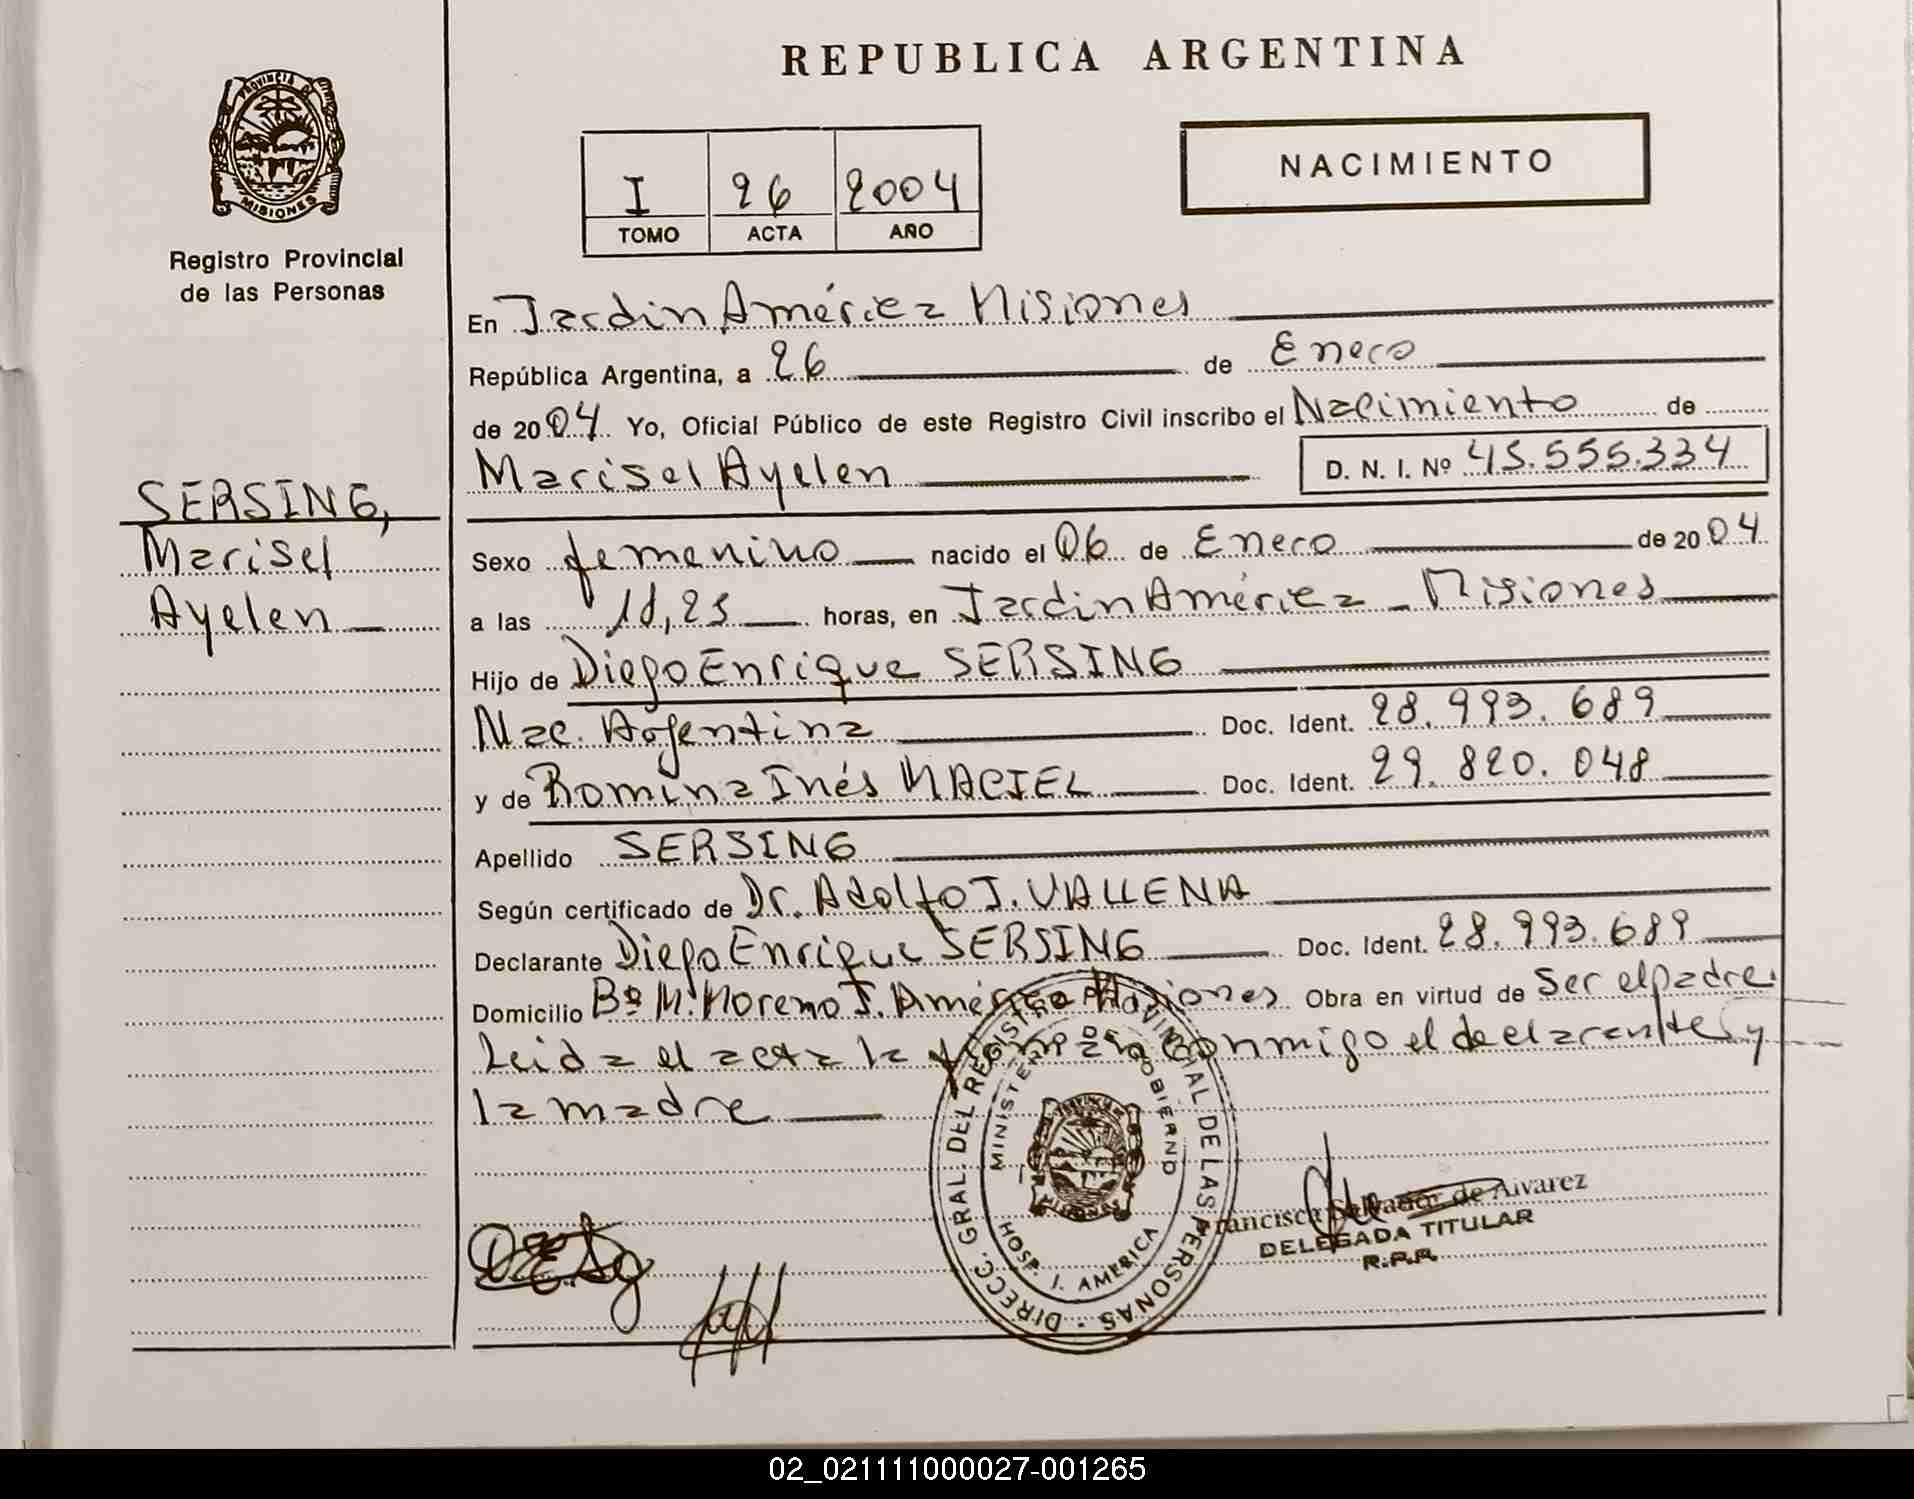 REPUBLICA ARGENTINA
PROVINCIA DE
MISIONES
Registro Provincial
de las Personas
I 26 2004
TOMO ACTA AÑO
NACIMIENTO
En Jardin América Misiones
República Argentina, a 26 de Enero
de 2004 Yo, Oficial Público de este Registro Civil inscribo el Nacimiento de
Marisel Ayelen D. N. I. Nº 45.555.334
SERSING,
Marisel
Ayelen
Sexo femenino nacido el 06 de Enero de 2004
a las horas, en Jardin América - Misiones
Hijo de Diego Enrique SERSING
Nac. Argentina Doc. Ident. 28.993.689
y de Romina Inés MACIEL Doc. Ident. 29.820.048
Apellido SERSING
Según certificado de Dr. Adolfo J. VALLENA
Declarante Diego Enrique SERSING Doc. Ident. 28.993.689
Domicilio Bº M. Moreno J. América Misiones Obra en virtud de Ser el padre.
Leida el acta la firman conmigo el declarante y
la madre
DIRECC. GRAL. DEL REGISTRO PROVINCIAL DE LAS PERSONAS
MINISTERIO DE GOBIERNO
HOSP. J. AMERICA
Francisca Salvador de Alvarez
DELEGADA TITULAR
R.P.P.
02_021111000027-001265